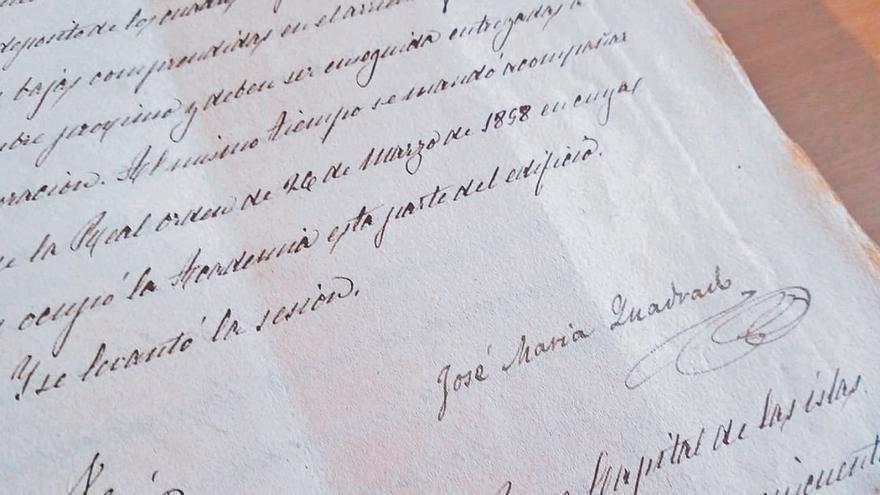 deposito de los cuadros
bajas comprendidas en el
y deben ser enseguida entregadas a
oración. Al mismo tiempo se mandó acompañar
e la Real orden de 26 de Marzo de 1858 en cuyas
ocupó la Academia esta parte del edificio.
Y se levantó la sesión.
José Maria Quadrado
Capital de las islas